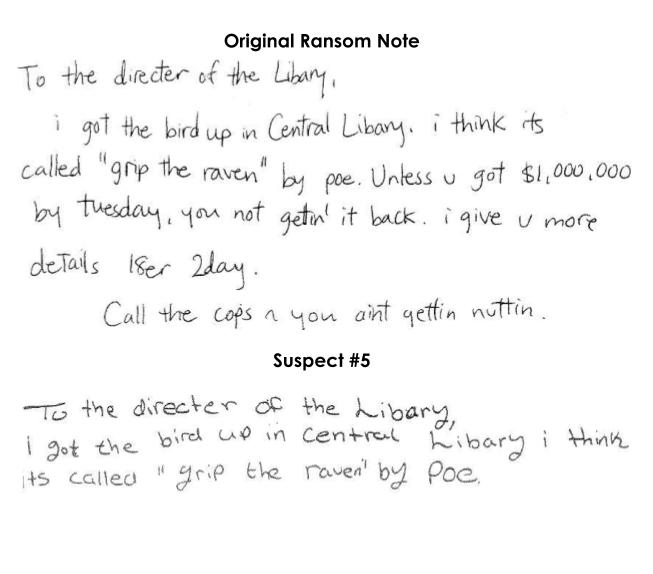 Original Ransom Note
To the directer of the Libary,
i got the bird up in Central Libary. i think its
called "grip the raven" by poe. Unless u got $1,000,000
by tuesday, you not getin' it back. i give u more
details l8er 2day.
Call the cops n you aint gettin nuttin.
Suspect #5
To the directer of the Libary,
i got the bird up in Central Libary i think
its called " grip the raven" by Poe.